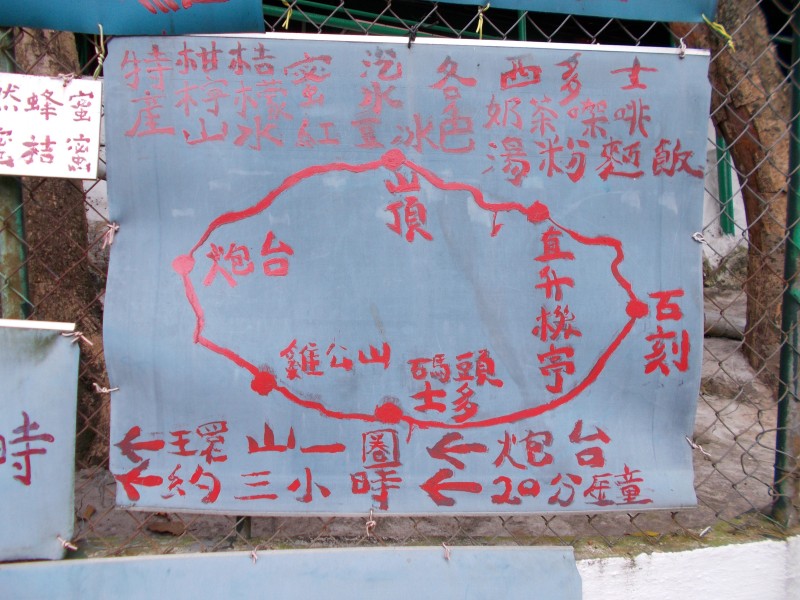 特產
柑桔蜜
檸檬
山水紅豆冰
汽水
各色
西多士
奶茶㗎啡
湯粉麵飯
山頂
直升機亭
炮台
石刻
雞公山
碼頭
士多
←環山一圈 ←炮台
←約三小時 ←20分鐘
然蜂蜜
桔蜜
時